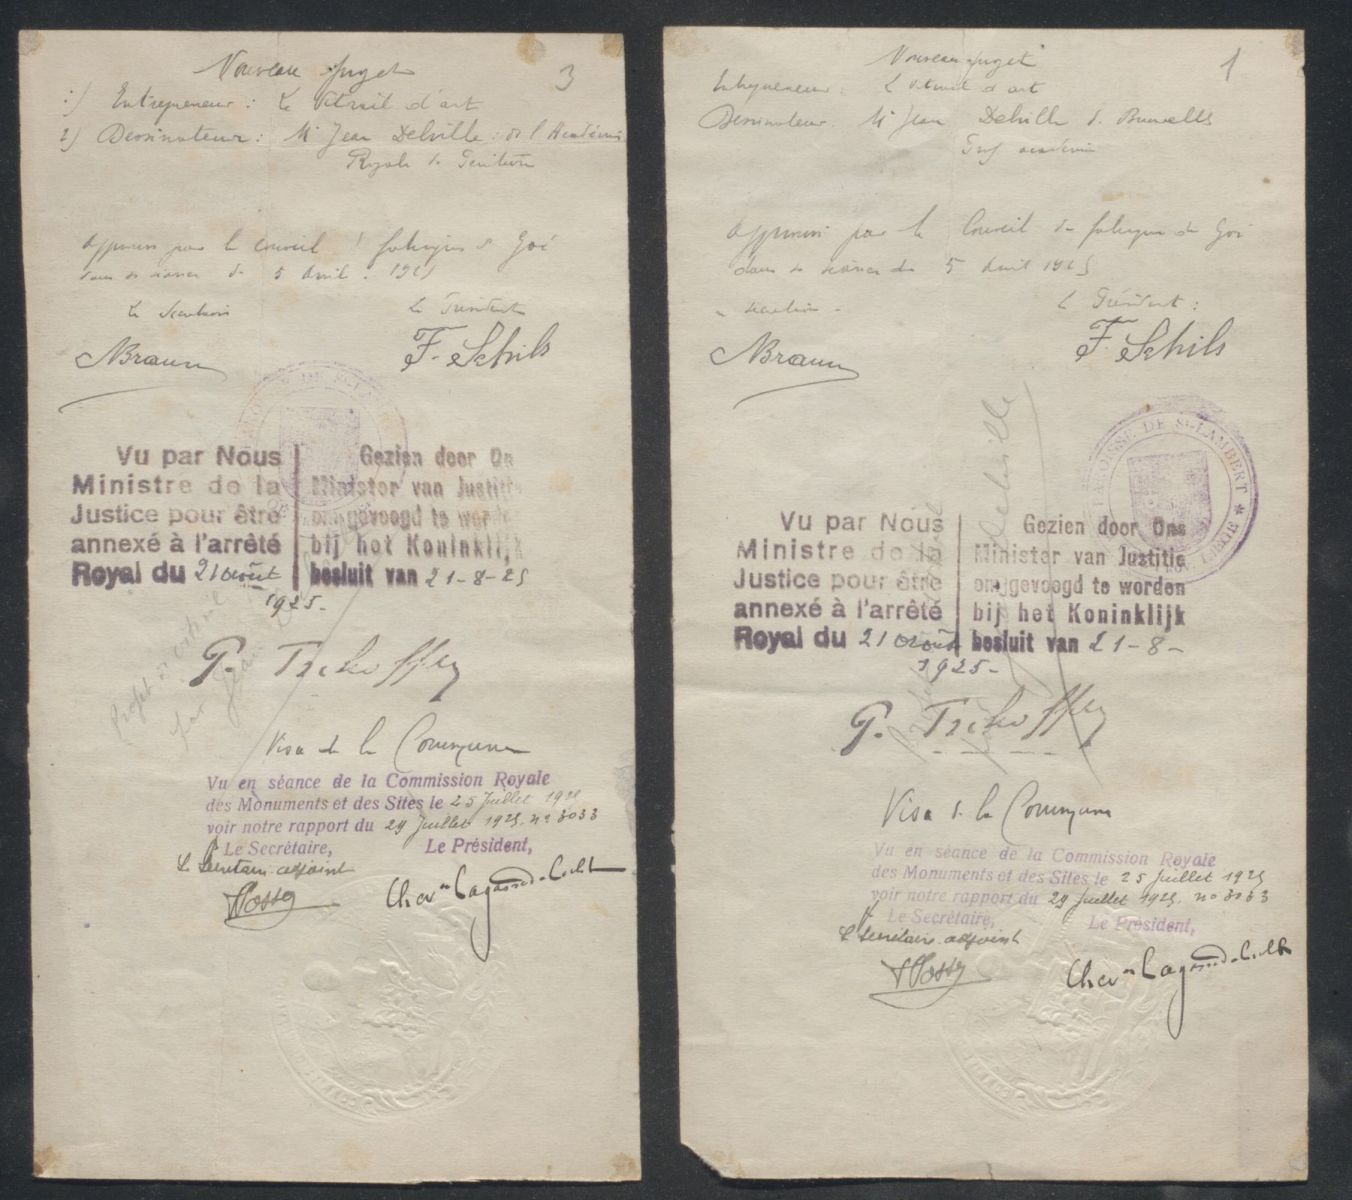 Nouveau projet
3
1) Entrepreneur : Le Vitrail d'art
2) Dessinateur : Mr Jean Delville : de l'Académie
Royale de Peinture
Approuvé par le Conseil fabrique de
dans sa séance du 5 Avril 1925
Le Secrétaire
Le Président
NBraun
F. Schils
DE St-LAMBERT
Vu par Nous
Ministre de la
Justice pour être
annexé à l'arrêté
Royal du 21 août
1925-
Gezien door On
Minister van Justitie
omjgevoegd te worden
bij het Koninklijk
besluit van 21-8-25
Projet de vitrail
par Jean
P. Tschoffen
Visa de la Commune
Vu en séance de la Commission Royale
des Monuments et des Sites le 25 Juillet 1925
voir notre rapport du 29 Juillet 1925. no 3033
Le Secrétaire,
Le Président,
Le Secrétaire adjoint
Chev er Lagasse de Locht
Nouveau projet
1
Entrepreneur : Le Vitrail d'art
Dessinateur : Mr Jean Delville de Bruxelles
Prof académie
Approuvé par le Conseil de fabrique de
dans sa séance du 5 Avril 1925
secrétaire
Le Président :
NBraun
F. Schils
PAROISSE DE St-LAMBERT * LIEGE *
Delville
Vu par Nous
Ministre de la
Justice pour être
annexé à l'arrêté
Royal du 21 août
1925-
Gezien door Ons
Minister van Justitie
omjgevoegd te worden
bij het Koninklijk
besluit van 21-8-
P. Tschoffen
Visa de la Commune
Vu en séance de la Commission Royale
des Monuments et des Sites le 25 Juillet 1925
voir notre rapport du 29 Juillet 1925. no 3033
Le Secrétaire,
Le Président,
Le Secrétaire adjoint
Chev er Lagasse de Locht